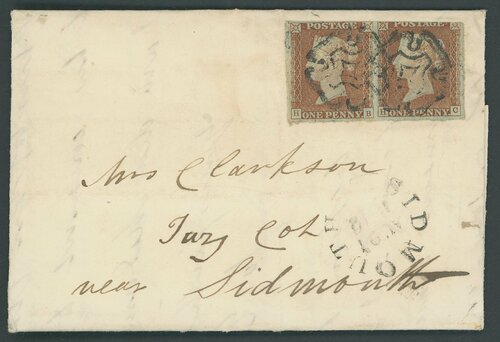 POSTAGE POSTAGE
H ONE PENNY B H ONE PENNY C
Mrs Clarkson
Ivy Cot
near Sidmouth
SIDMOUTH